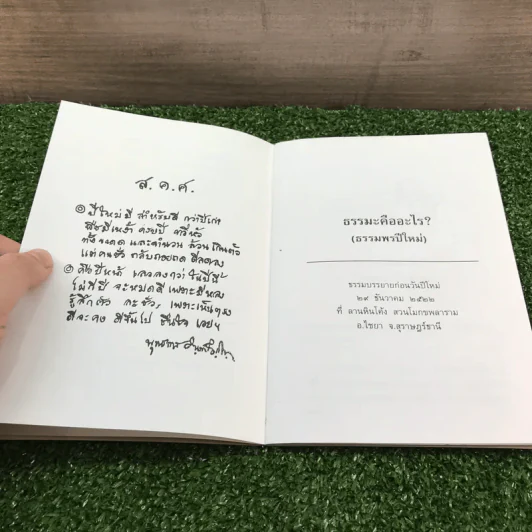 ส.ค.ศ.
๑ ปีใหม่มี สำหรับดี กว่าปีเก่า
ทั้ง และคำนวน ล้วน
แต่คนชั่ว กลับถอยถด
๒ คือปีหน้า เลวลงกว่า ในปีนี้
ไม่กี่ปี จะหมดดี เพราะผีหลง
รู้สึกตัว ละชั่ว, เพราะเห็นตรง
ดีจะคง ดีขึ้นไป ชื่นใจ เอยฯ
พุทธทาส อินทปัญโญ
ธรรมะคืออะไร?
(ธรรมพรปีใหม่)
ธรรมบรรยายก่อนวันปีใหม่
๒๙ ธันวาคม ๒๕๒๒
ที่ ลานหินโค้ง สวนโมกขพลาราม
อ.ไชยา จ.สุราษฎร์ธานี